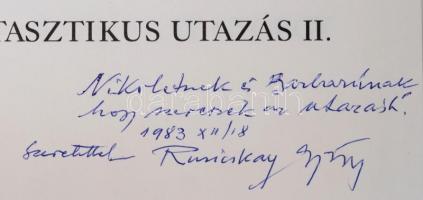 TASZTIKUS UTAZÁS II.
Nikolettnek és Barbarának
hogy szeressék az utazást.
1983 XII/18
Szeretettel Ruzicskay György